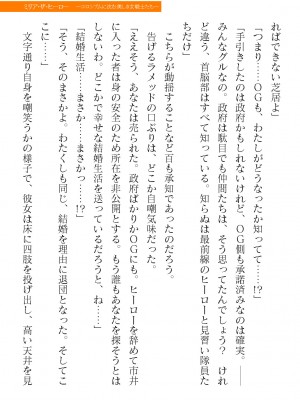 ればできない芝居よ」
「つまり……OGも、わたしがどうなったか知ってて……!?」
「手引きしたのは政府かもしれないけれど、OG側も承諾済みなのは確実。――
みんなグルなの。政府は駄目でも仲間たちは、そう思ってたんでしょう? けれ
ど違う、首脳部はすべて知っている。知らぬは最前線のヒーローと見習い隊員た
ちだけ」
こちらが動揺することなど百も承知であったのだろう。
告げるラメッドの口ぶりは、どこか自嘲気味だった。
「ええそう、あなたは売られた。政府ばかりかOGにも。ヒーローを辞めて市井
に入った者は身の安全のため所在を非公開とする。もう誰もあなたを探そうとは
しないわ。どこかで幸せな結婚生活を送っているだろうと、ね……」
「まさか……まさかっ……!?」
「そう、そのまさかよ。わたくしも同じ、結婚を理由に退団となった。そしてこ
こに……」
文字通り自身を嘲笑うかの様子で、彼女は床に四肢を投げ出し、高い天井を見